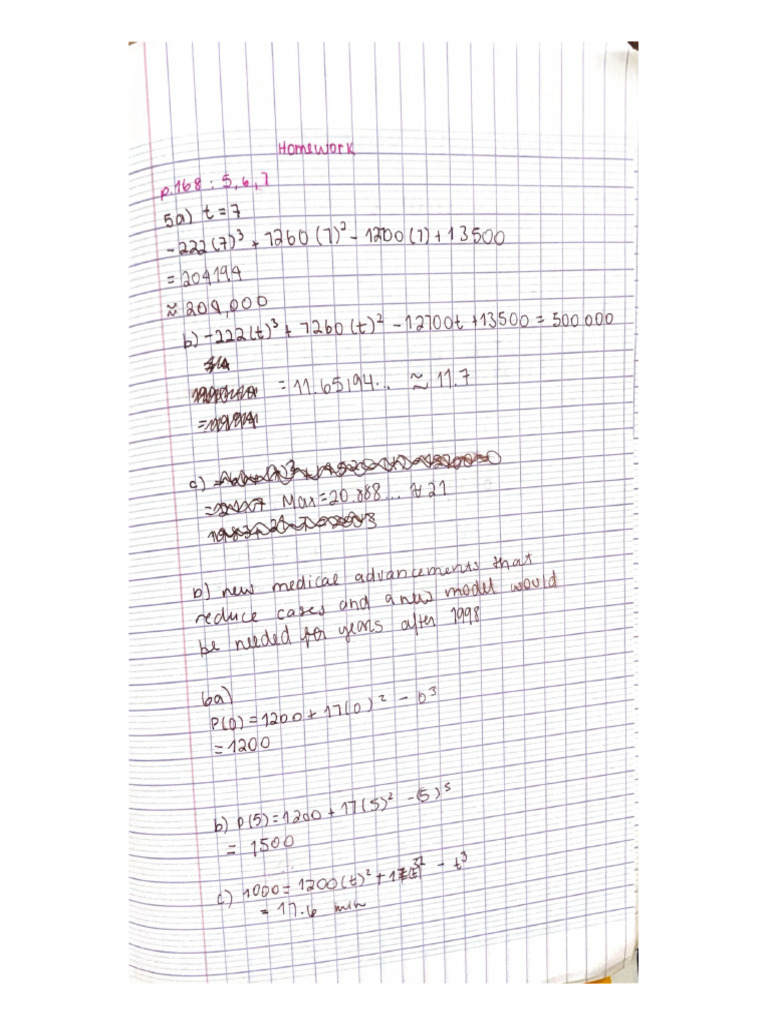 Homework
p.168 : 5, 6, 7
5a) t = 7
-222(7)³ + 7260(7)² - 12700(7) + 13500
= 204194
≈ 204,000
b) -222(t)³ + 7260(t)² - 12700t + 13500 = 500000
= 11.65194... ≈ 11.7
c)
Max = 20.888... ≈ 21
D) new medical advancements that
reduce cases and a new model would
be needed for years after 1998
6a)
P(0) = 1200 + 17(0)² - 0³
= 1200
b) P(5) = 1200 + 17(5)² - (5)⁵
= 1500
c) 1000 = 1200(t)² + 17(t)² - t³
= 17.6 min